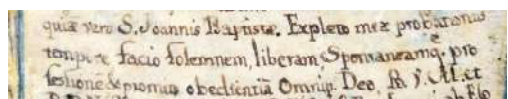 quiæ vero S. Joannis Baptistæ. Expleto meæ probationis
tempore facio solemnem, liberam, Spontaneamq. pro
fessione & promitto obedientiā Omnip. Deo, B. V. M. et